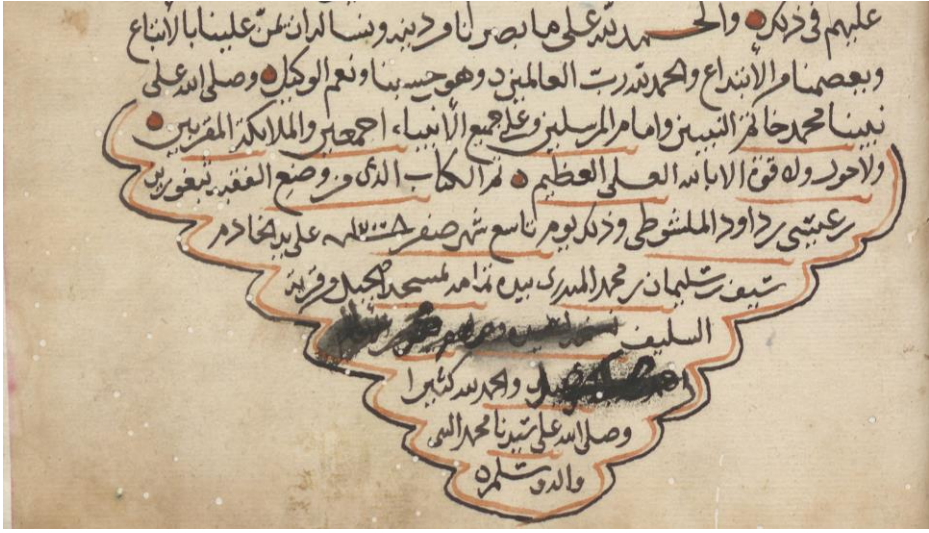 عليهم في ذلك والحمد لله على ما بصرنا من دينه ونساله ان يمن علينا بالاتباع
ويعصمنا من الابتداع والحمد لله رب العالمين وهو حسبنا ونعم الوكيل وصلى الله على
نبينا محمد خاتم النبيين وامام المرسلين وعلى جميع الأنبياء اجمعين والملايكة المقربين
ولا حول ولا قوة الا بالله العلي العظيم تم الكتاب الذي من وضع الفقيه تبغورين
بن عيسى بن داود الملشوطي وذلك يوم تاسع شهر صفر على يد الخادم
سليمان بن محمد بيده
السليف
والحمد لله كثيرا
وصلى الله على سيدنا محمد النبي
واله وسلم